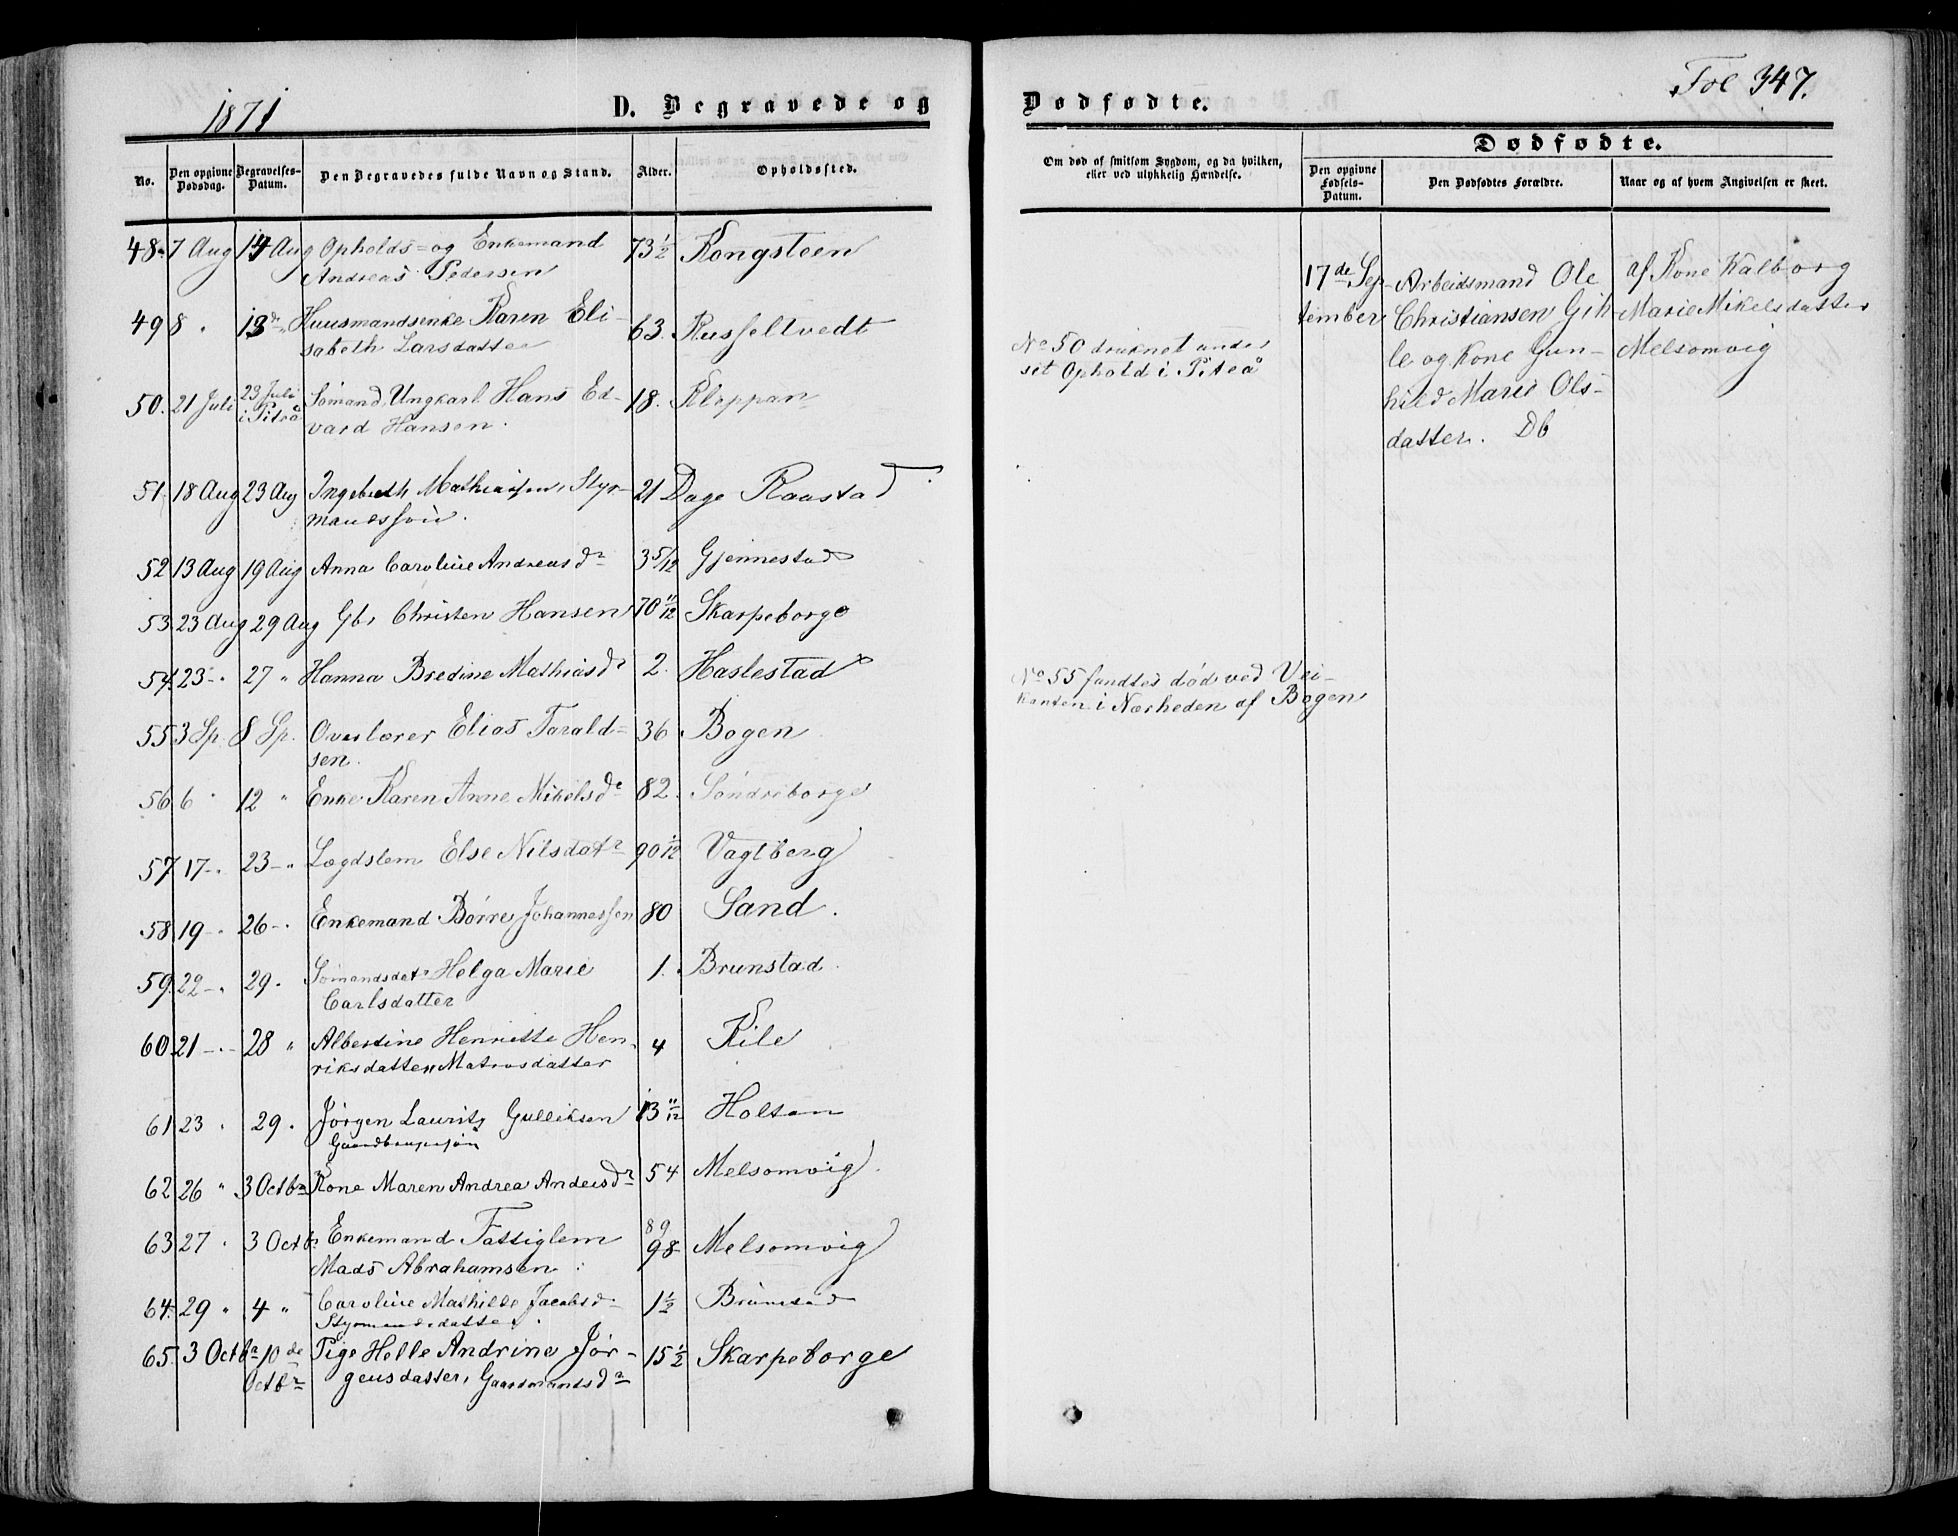 1871
D. Begravede og
No.
Den opgivne Dødsdag.
Begravelses-Datum.
Den Begravedes fulde Navn og Stand.
Alder.
Opholdssted.
48. 7 Aug 14 Aug Opholds- og Enkemand 73 1/2 Kongsteen
Andreas Pedersen
49 8 " 13de " Huusmandsenke Karen Eli- 63. Russeltvedt
sabeth Larsdatter
50. 21 Juli 23 Juli i Piteå Sømand, Ungkarl Hans Ed- 18. Kleppan
vard Hansen.
51. 18 Aug 23 Aug Ingebreth Mathiassen, Styr- 21 Dage Raastad
mandssøn.
52 13 Aug 19 Aug Anna Caroline Andreasdr 3 5/12 Gjennestad
53 23 Aug 29 Aug Gb. Christen Hansen 70 11/12 Skarpeborge
54. 23 - " 27 " Hanna Bredine Mathiasdr 2. Haslestad
55 3 Sp. 8 Sp. Overlærer Elias Tarald- 36 Bogen
sen.
56 6 " 12 " Enke Karen Anne Mikelsdr 82. Søndreborge
57 17 - " 23 - " Lægdslem Else Nilsdatr 90 1/12 Vagtberg
58 19 - " 26 - " Enkemand Børre Johannessen 80 Sand.
59. 22 - " 29. Sømandsdatr Helga Marie 1. Brunstad.
Carlsdatter
60 21 - " 28 " Albertine Henriette Hen- 4 Kile
riksdatter, Matrosdatter
61 23 " 29. Jørgen Lauritz Gulliksen 13 11/12 Holtan
Gaardbrugersøn
62 26 " 3 Octbr Kone Maren Andrea Andersdr 54 Melsomvig.
63 27 " 3 Octbr Enkemand Fattiglem 89 98 Melsomvig
Mads Abrahamsen
64. 29 " 4 " Caroline Mathilde Jacobsdr 1 1/2 Brunstad
Styrmandsdatter.
65. 3 Octbr 10de Pige Helle Andrine Jør- 15 1/2 Skarpeborge
Octbr gensdatter, Gaardmandsdr
Fol 347.
Dødfødte.
Om død af smitsom Sygdom, og da hvilken,
eller ved ulykkelig Hændelse.
Dødfødte.
Den opgivne Fødsels-Datum.
Den Dødfødtes Forældre.
Naar og af hvem Angivelsen er skeet.
No 50 druknet under
sit Ophold i Piteå
17de Sep-
tember
Arbeidsmand Ole
Christiansen Gih-
le og Kone Gun-
hild Marie Ols-
datter. Db
af Kone Valborg
Marie Mikelsdatter
Melsomvig
No 55 fandtes død ved Vei-
kanten i Nærheden af Bogen